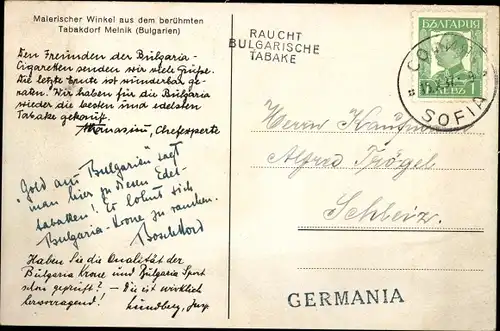 Malerischer Winkel aus dem berühmten
Tabakdorf Melnik (Bulgarien)
Den Freunden der Bulgaria-
Cigaretten senden wir viele Grüße.
Die letzte Ernte ist wunderbar ge-
raten. Wir haben für die Bulgaria
wieder die besten und edelsten
Tabake gekauft.
Athanasiu, Chefexperte
"Gold aus Bulgarien" sagt
man hier zu diesen Edel-
tabaken! Es lohnt sich
Bulgaria-Krone zu rauchen.
Haben Sie die Qualität der
Bulgaria Krone und Bulgaria Sport
schon geprüft? - die ist wirklich
hervorragend!
RAUCHT
BULGARISCHE
TABAKE
БЪЛГАРИЯ
1
SOFIA
Herrn Kaufm.
Alfred Trögel
Schleiz.
GERMANIA